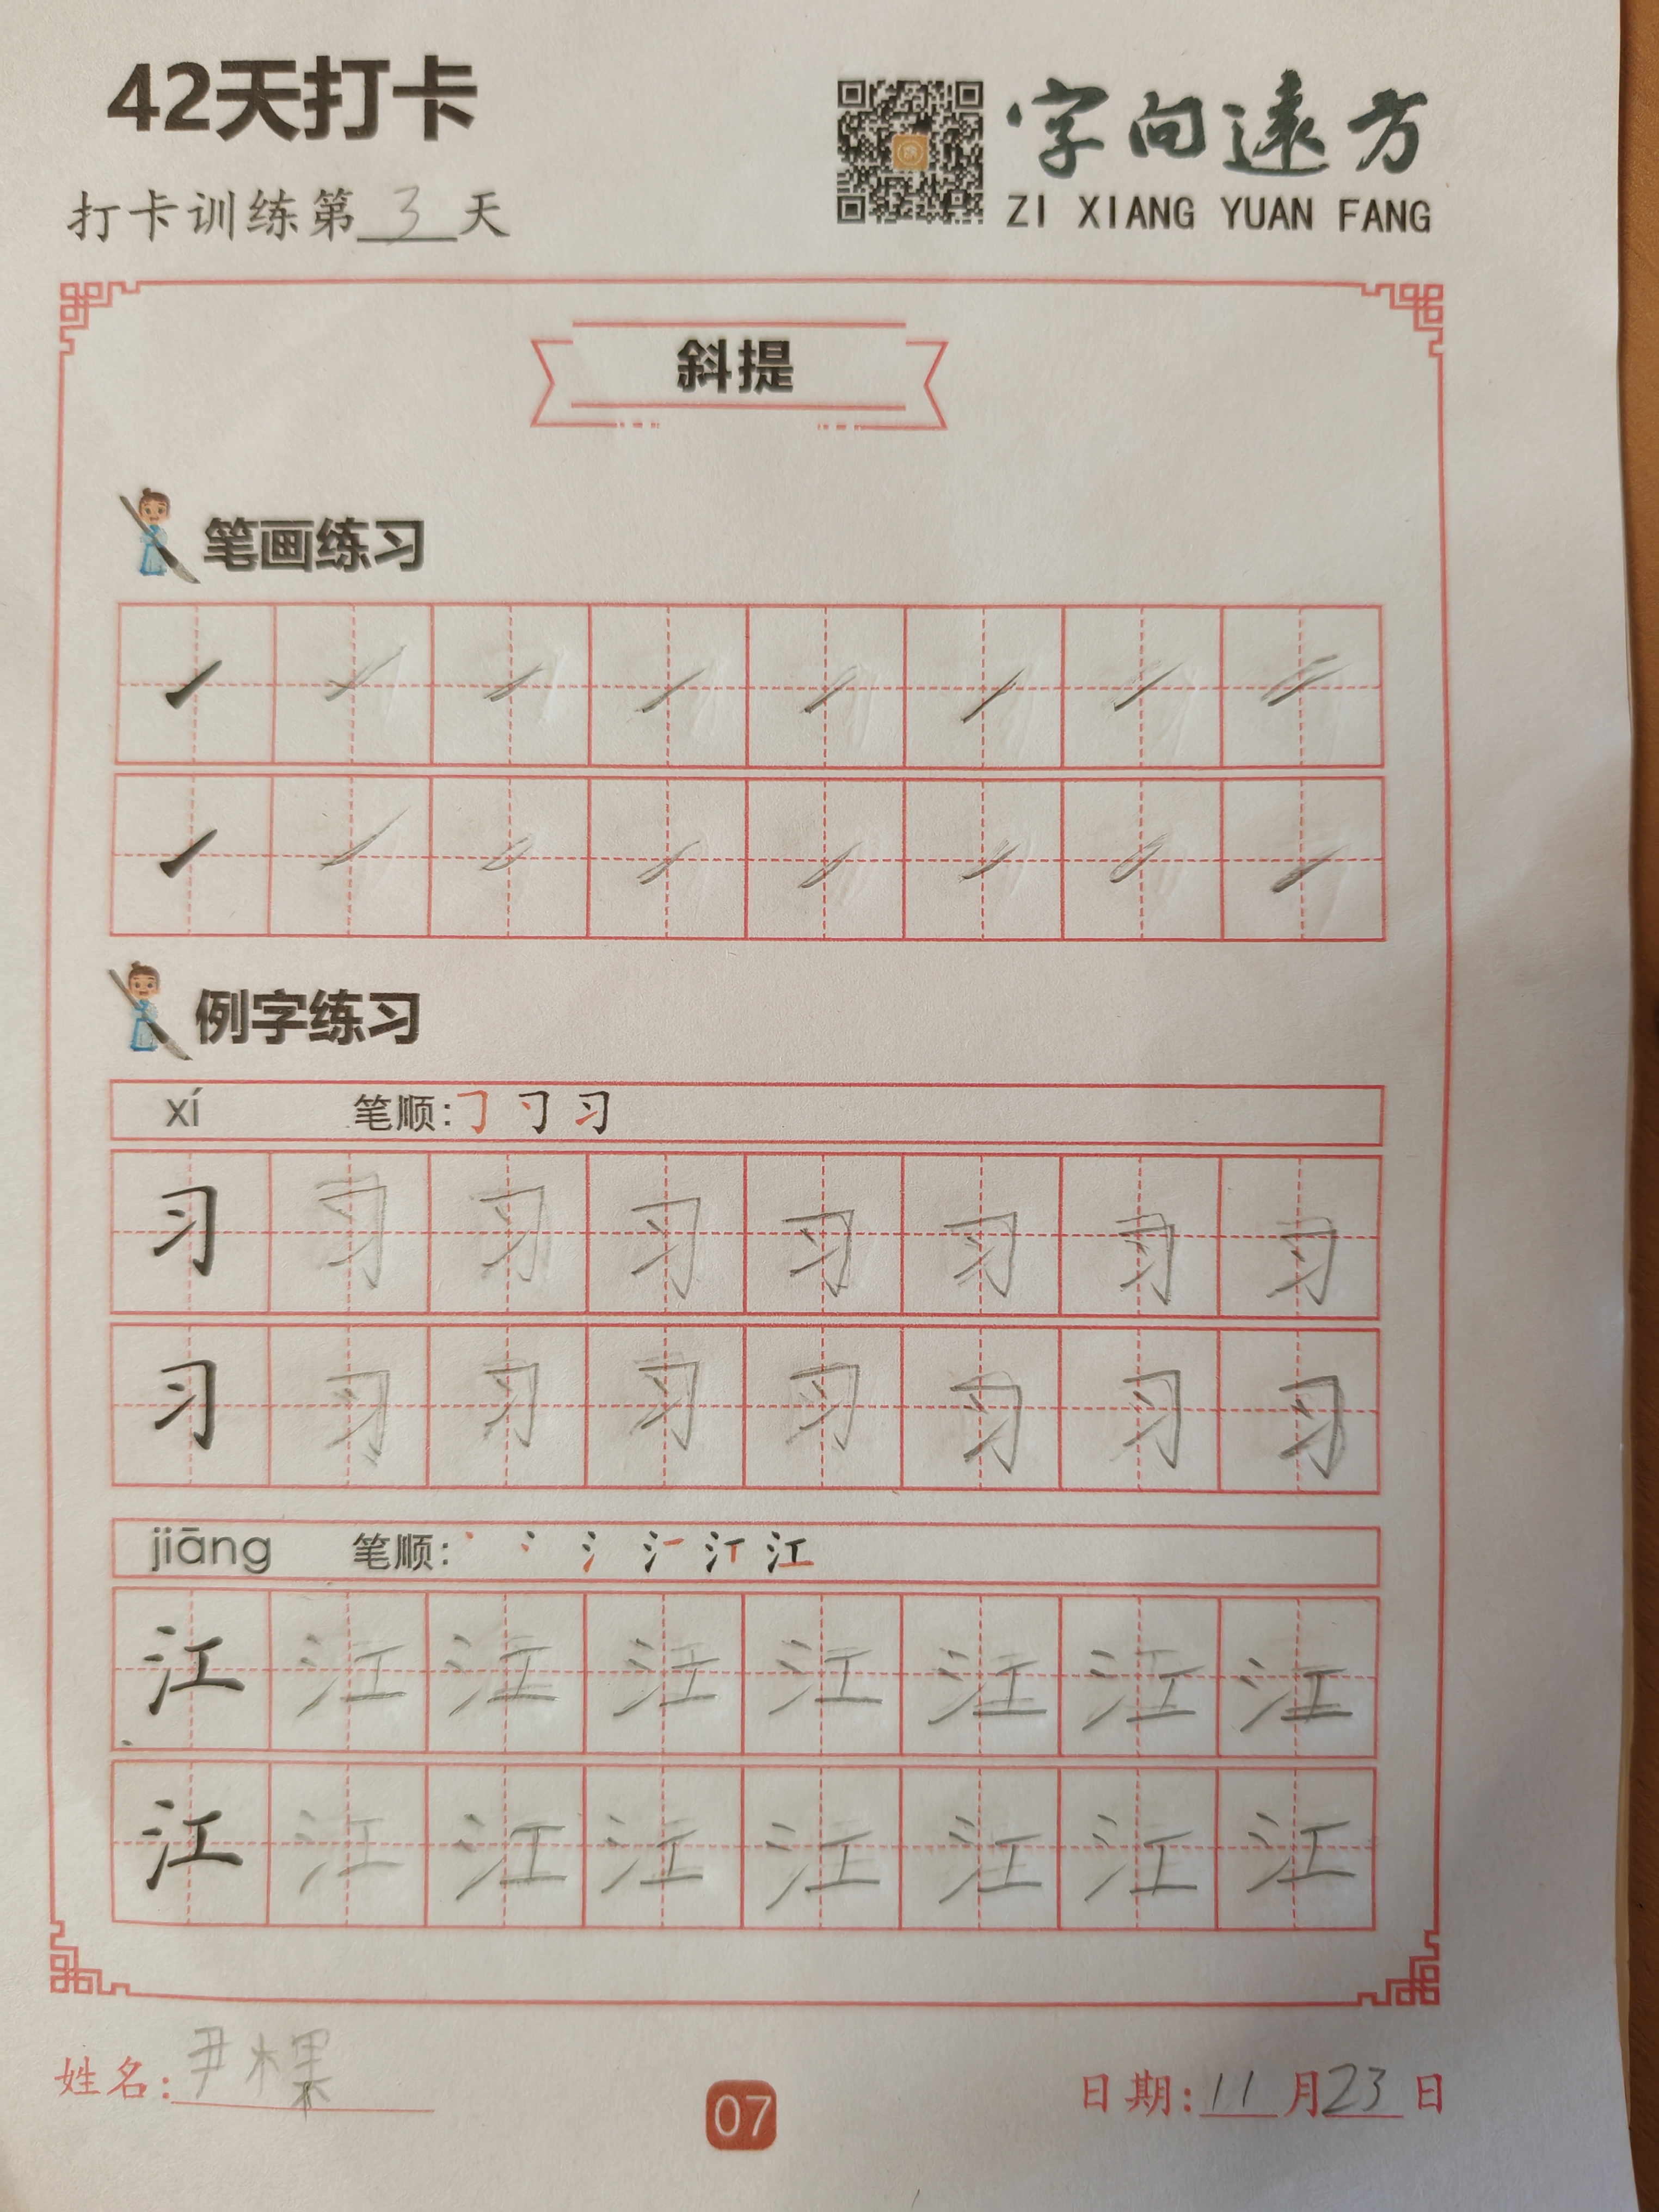 42天打卡
字向遠方
打卡训练第3天
ZI XIANG YUAN FANG
斜提
笔画练习
例字练习
xí 笔顺: 习
习 习 习 习 习 习 习 习
习 习 习 习 习 习 习 习
jiāng 笔顺: 江
江 江 江 江 江 江 江 江
江 江 江 江 江 江 江 江
姓名: 尹木果
07
日期: 11月23日